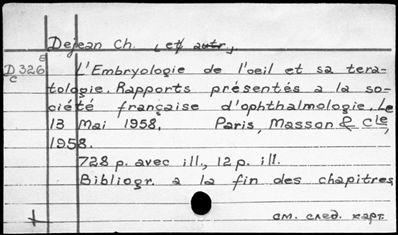 Dejean Ch. (et autr.,
D 326 5 L'Embryologie de l'oeil et sa tera-
c
tologie. Rapports présentés a la so-
ciété française d'ophthalmologie. Le
13 Mai 1958. Paris, Masson & Cie,
1958.
728 p. avec ill., 12 p. ill.
Bibliogr. a la fin des chapitres
см. след. карт.